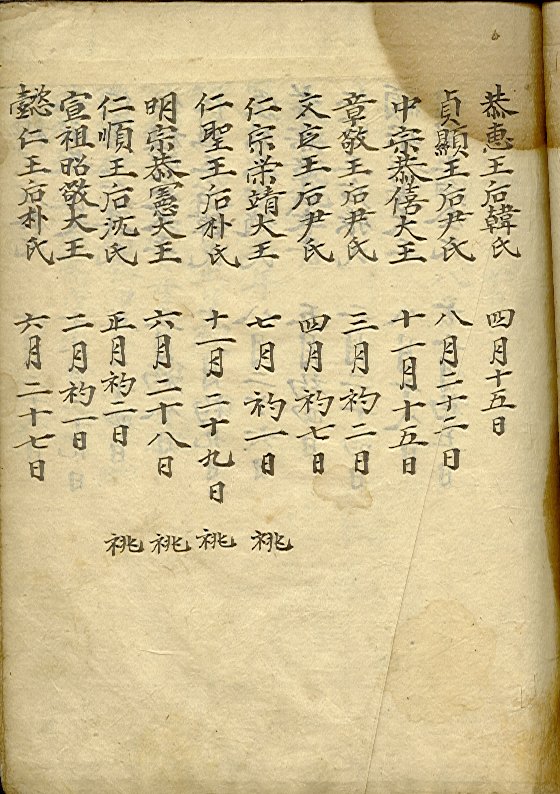 恭惠王后韓氏 四月十五日
貞顯王后尹氏 八月二十二日
中宗恭僖大王 十一月十五日
章敬王后尹氏 三月初二日
文定王后尹氏 四月初七日
仁宗栄靖大王 七月初一日 祧
仁聖王后朴氏 十一月二十九日 祧
明宗恭憲大王 六月二十八日 祧
仁順王后沈氏 正月初二日 祧
宣祖昭敬大王 二月初一日
懿仁王后朴氏 六月二十七日